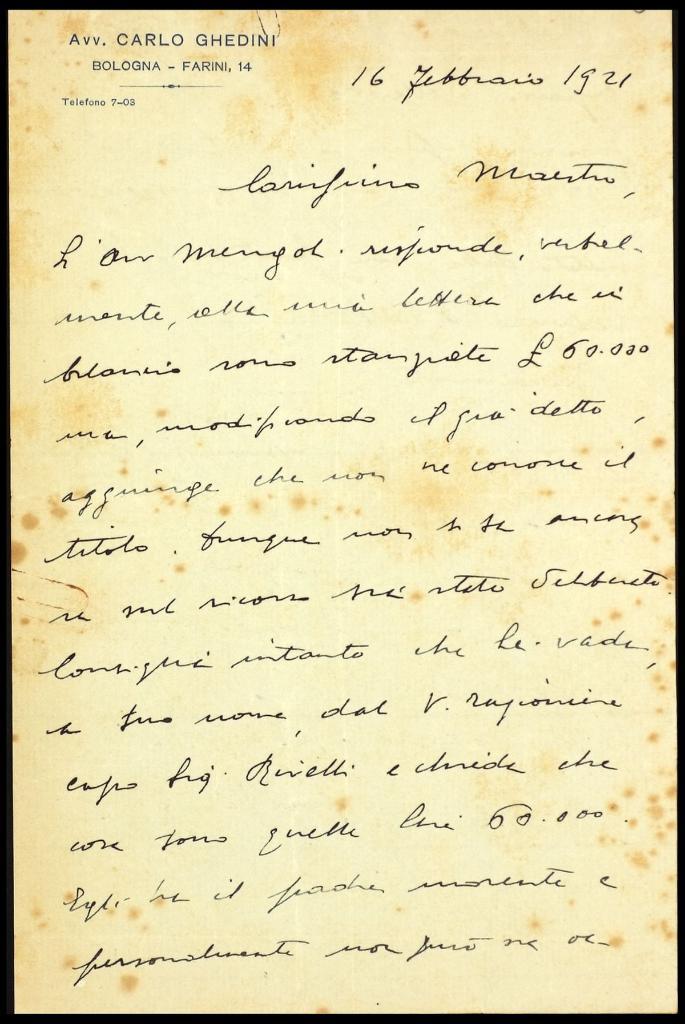 Avv. CARLO GHEDINI
BOLOGNA - FARINI, 14
Telefono 7-03
16 Febbraio 1921
Carissimo Maestro,
L'avv Mengol. risponde, verbal-
mente, alla mia lettera che in
bilancio sono stanziate £ 60.000
ma, modificando il già detto,
aggiunge che non ne conosce il
titolo. Dunque non si sa ancora
se sul ricorso sia stato deliberato.
Consiglia intanto che Lei vada,
a suo nome, dal V. ragioniere
capo Sig. Rivelli e chieda che
cosa sono quelle Lire 60.000.
Egli ha il padre morente e
personalmente non può ne oc-